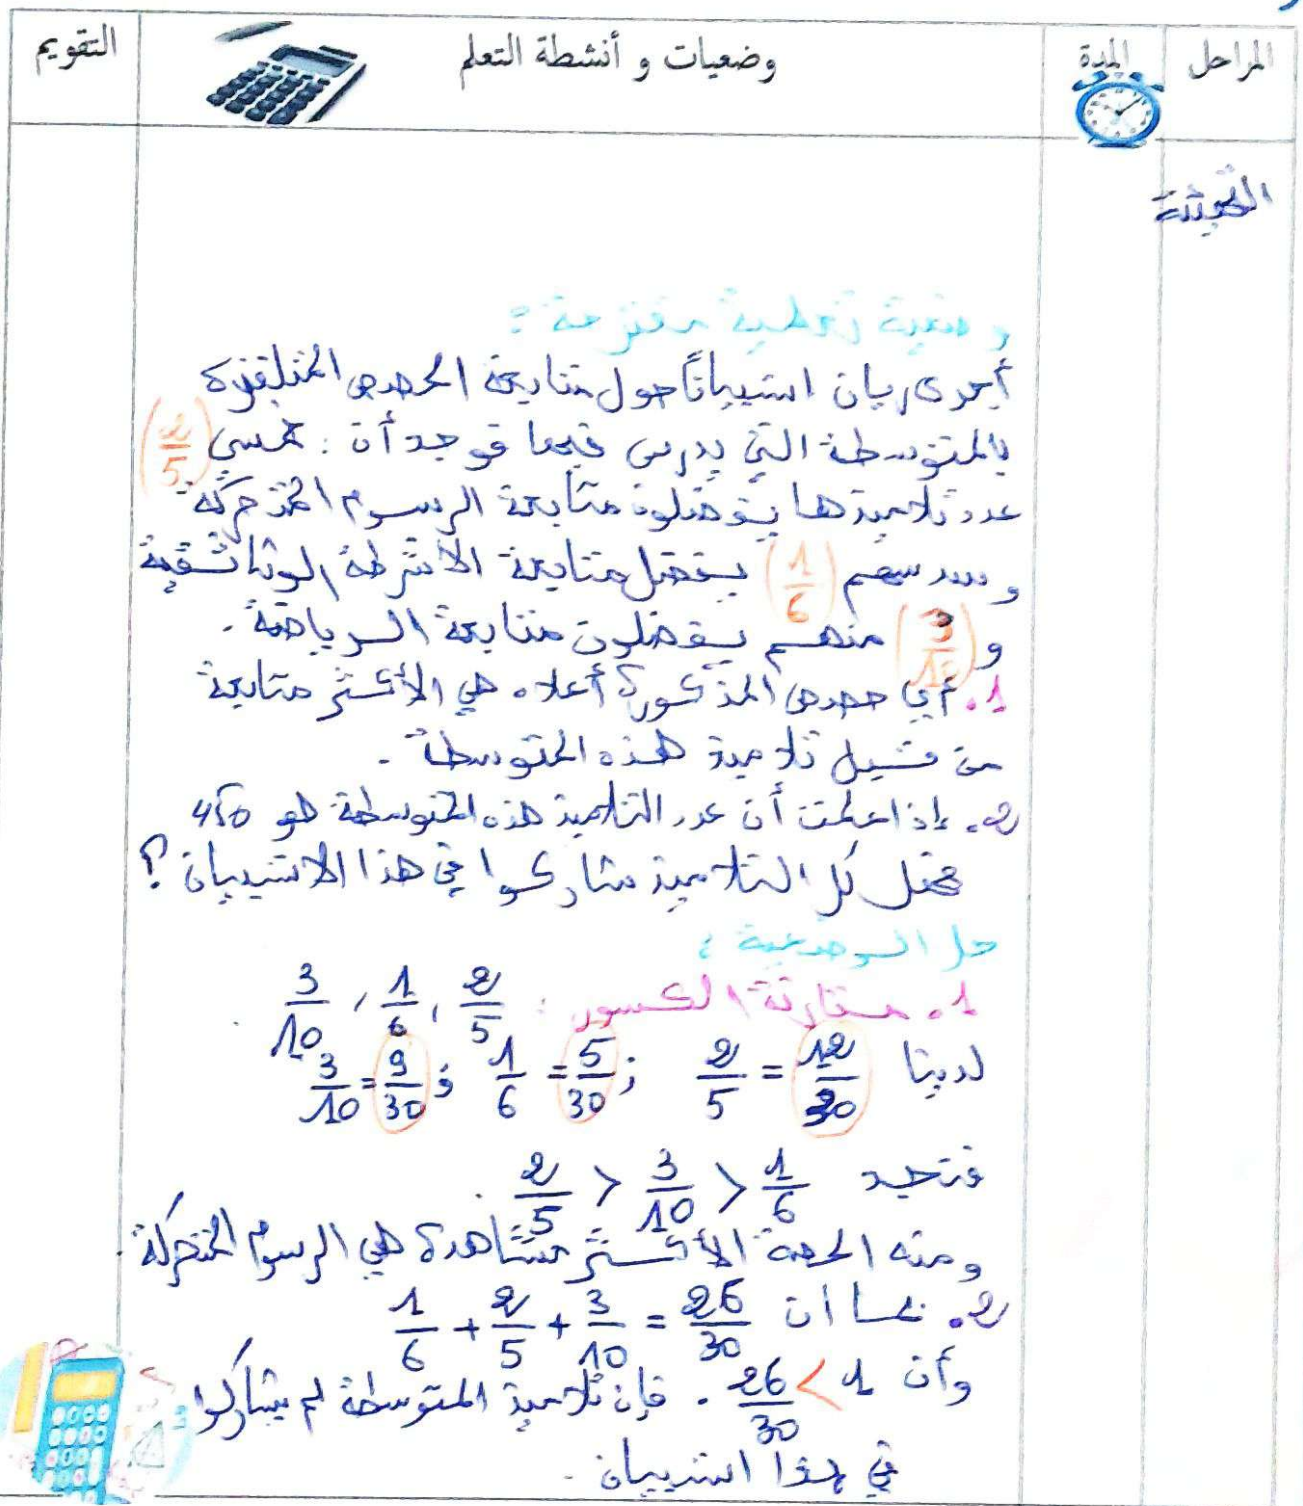 المراحل
المدة
وضعيات و أنشطة التعلم
التقويم
التهيئة
وضعية تعلمية مقترحة :
أجرى ريان استبيانًا حول متابعة الحصص المتلفزة
بالمتوسطة التي يدرس فيها فوجد أن : خمسي (2/5)
عدد تلاميذها يفضلون متابعة الرسوم المتحركة
وسدسهم (1/6) يفضل متابعة الأشرطة الوثائقية
و (3/10) منهم يفضلون متابعة الرياضة .
1. أي حصص المذكورة أعلاه هي الأكثر متابعة
من قبل تلاميذ هذه المتوسطة .
2. إذا علمت أن عدد التلاميذ هذه المتوسطة هو 450
فهل كل التلاميذ شاركوا في هذا الاستبيان ؟
حل الوضعية :
1. مقارنة الكسور : 2/5 , 1/6 , 3/10
لدينا 2/5 = 12/30 ; 1/6 = 5/30 و 3/10 = 9/30
فنجد 2/5 > 3/10 > 1/6 .
ومنه الحصة الأكثر مشاهدة هي الرسوم المتحركة .
2. بما أن 1/6 + 2/5 + 3/10 = 26/30
وأن 26/30 < 1 . فإن تلاميذ المتوسطة لم يشاركوا
في هذا استبيان .